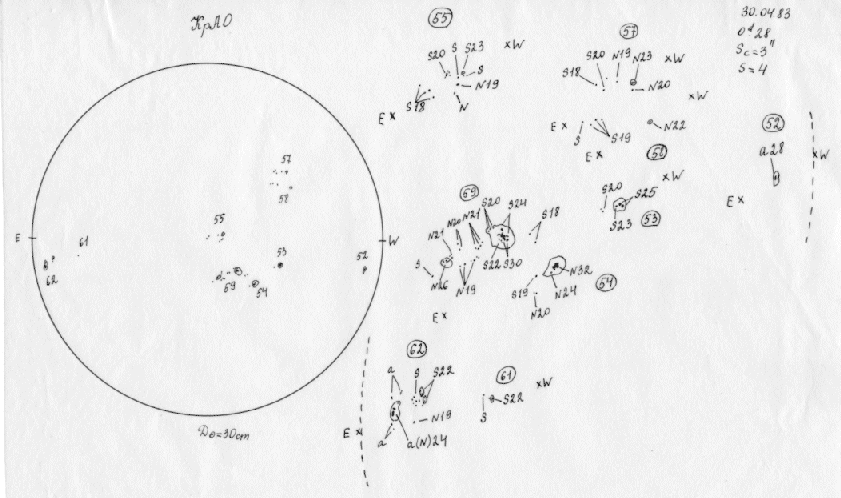 КрАО
30.04.83
S=4
E
W
61
62
55
57
58
53
52
69
54
D⊙=30cm
55
S20 S S23
×W
S
N19
S18
N
E×
57
S20 N19 N23
×W
S18
N20
×W
E×
S
S19
N22
E×
58
52
a28
×W
E×
69
S20 S24
N20 N21
N21
S18
S
N26
N19
S22 S30
E×
×W
S20
S25
S23
53
N32
S19
N24
N20
54
62
a
S
S22
N19
E×
a
a(N)24
61
×W
S22
S